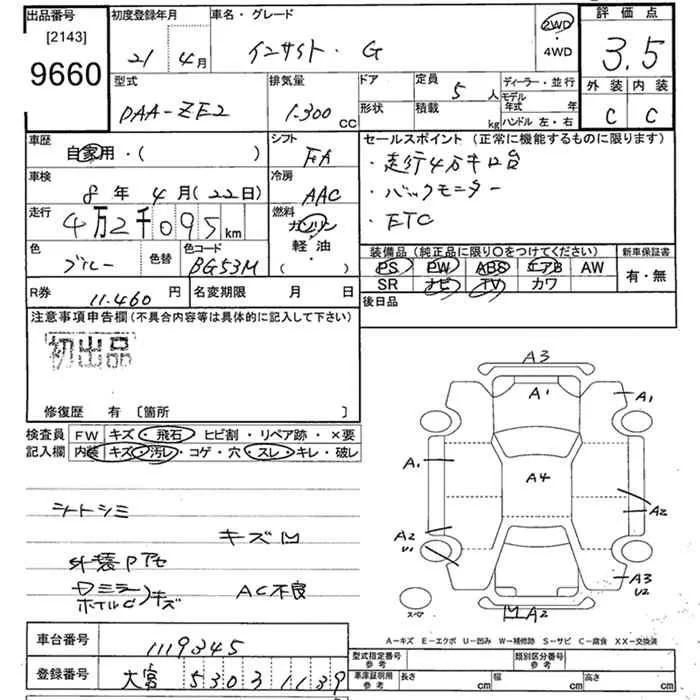 出品番号
[2143]
9660
初度登録年月
21 年 4 月
車名・グレード
インサイト・G
2WD
・
4WD
評価点
3.5
外装 内装
C C
型式
DAA-ZE2
排気量
1.300 CC
ドア
形状
定員
5 人
積載
kg
ディーラー・並行
モデル年式 年
ハンドル 左・右
車歴
自家用・( )
シフト
FA
セールスポイント (正常に機能するものに限ります)
・走行4万キロ台
・バックモニター
・ETC
車検
8 年 4 月(22日)
冷房
AAC
走行
4万2千095 km
燃料
ガソリン
軽・油
( )
色
ブルー
色替
色コード
BG53M
装備品(純正品に限り○をつけてください)
PS PW ABS エアB AW
SR ナビ TV カワ
新車保証書
有・無
R券
11.460 円
名変期限 月 日
後日品
注意事項申告欄(不具合内容等は具体的に記入して下さい)
初出品
修復歴 有 〔箇所 〕
検査員
記入欄
FW キズ・飛石・ヒビ割・リペア跡・×要
内装 キズ・汚レ・コゲ・穴・スレ・キレ・破レ
シートシミ
キズ凹
外装
キズ
AC不良
A3
A1
A1
A1
A4
A2
A2
U1
A3
U2
A2
スペア
A-キズ E-エクボ U-凹み W-補修跡 S-サビ C-腐食 XX-交換済
車台番号
1119345
登録番号
大宮 530 31139
型式指定番号
参考
類別区分番号
参考
車庫証明用
参考
長さ cm
幅 cm
高さ cm